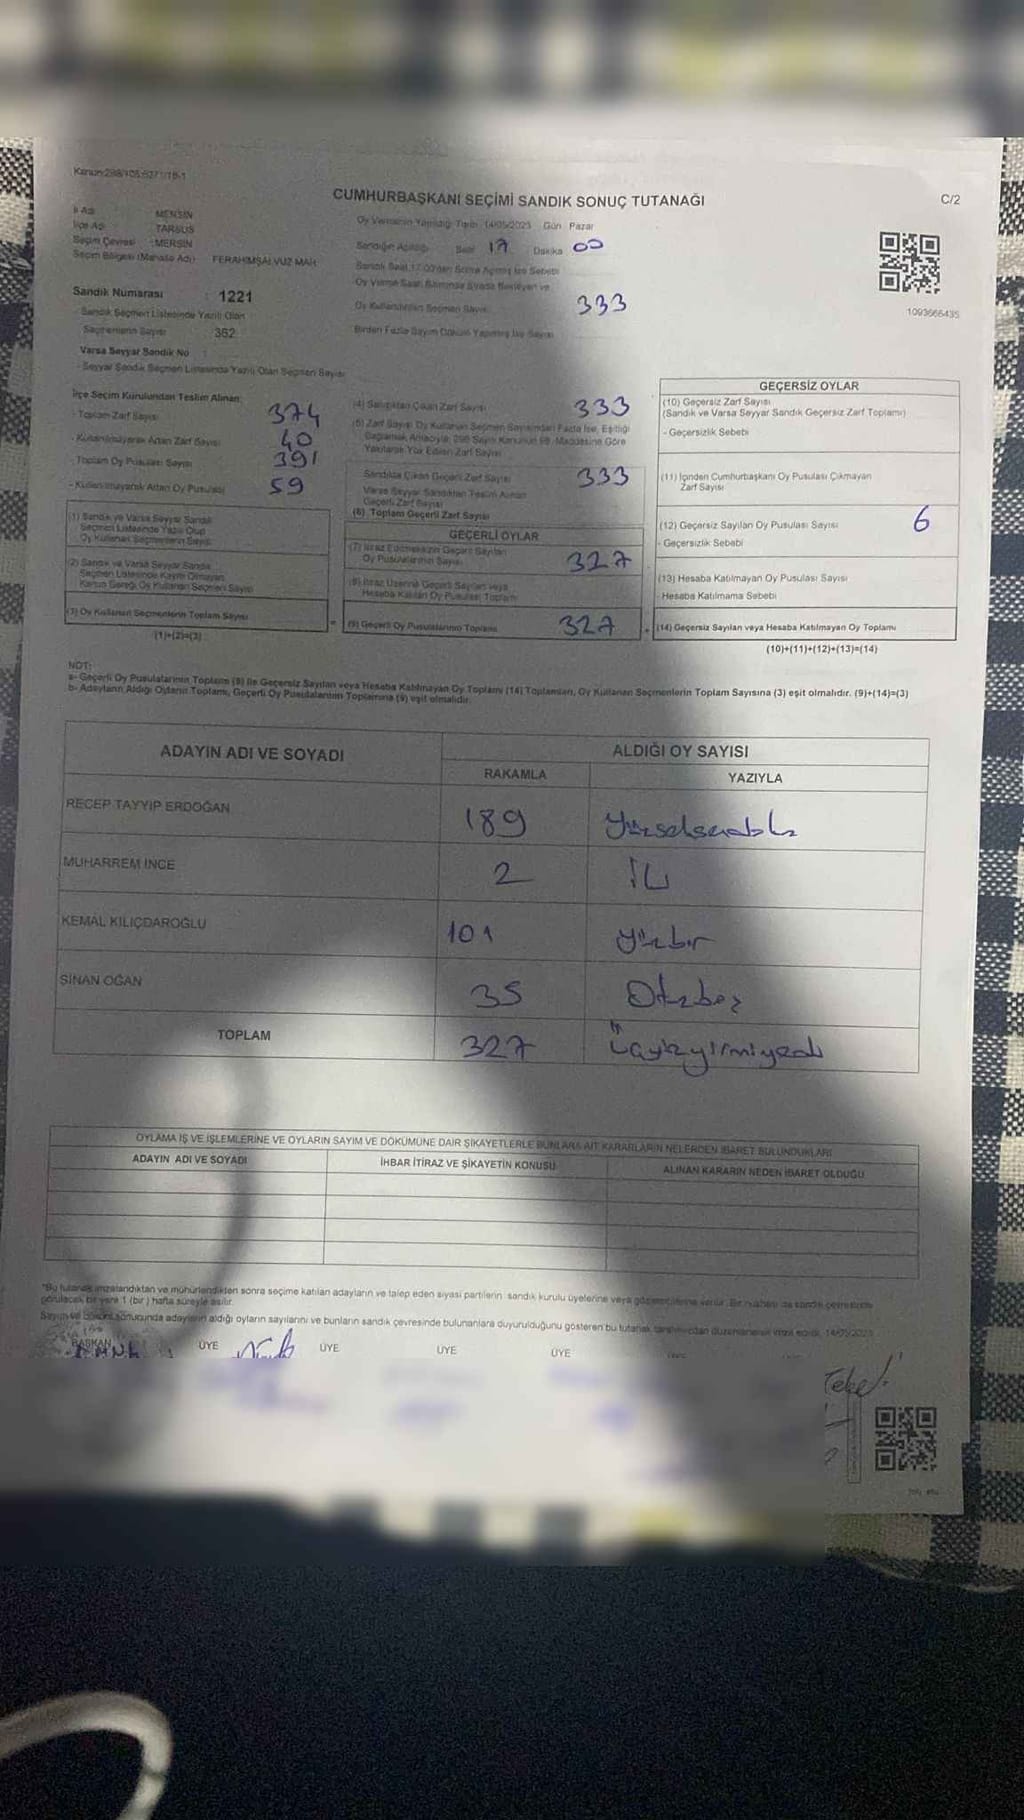 Kanun:298/105;6271/18-1
CUMHURBAŞKANI SEÇİMİ SANDIK SONUÇ TUTANAĞI
C/2
İl Adı MERSİN
İlçe Adı TARSUS
Seçim Çevresi : MERSİN
Seçim Bölgesi (Mahalle Adı) FERAHİMŞALVUZ MAH.
Oy Vermenin Yapıldığı Tarih 14/05/2023 Gün Pazar
Sandığın Açıldığı Saat 17 Dakika 00
Sandık Saat 17.00'den Sonra Açılmış İse Sebebi
Oy Verme Saati Bitiminde Sırada Bekleyen ve
Oy Kullandırılan Seçmen Sayısı 333
Birden Fazla Sayım Döküm Yapılmış İse Sayısı
1093666435
Sandık Numarası : 1221
- Sandık Seçmen Listesinde Yazılı Olan
Seçmenlerin Sayısı 362
Varsa Seyyar Sandık No :
- Seyyar Sandık Seçmen Listesinde Yazılı Olan Seçmen Sayısı
İlçe Seçim Kurulundan Teslim Alınan:
- Toplam Zarf Sayısı 374
- Kullanılmayarak Artan Zarf Sayısı 40
- Toplam Oy Pusulası Sayısı 391
- Kullanılmayarak Artan Oy Pusulası 59
(1) Sandık ve Varsa Seyyar Sandık
Seçmen Listesinde Yazılı Olup
Oy Kullanan Seçmenlerin Sayısı
(2) Sandık ve Varsa Seyyar Sandık
Seçmen Listesinde Kaydı Olmayan
Kanun Gereği Oy Kullanan Seçmen Sayısı
(3) Oy Kullanan Seçmenlerin Toplam Sayısı
(1)+(2)=(3)
(4) Sandıktan Çıkan Zarf Sayısı 333
(5) Zarf Sayısı Oy Kullanan Seçmen Sayısından Fazla İse, Eşitliği
Sağlamak Amacıyla, 298 Sayılı Kanunun 98. Maddesine Göre
Yakılarak Yok Edilen Zarf Sayısı
Sandıkta Çıkan Geçerli Zarf Sayısı 333
Varsa Seyyar Sandıktan Teslim Alınan
Geçerli Zarf Sayısı
(6) Toplam Geçerli Zarf Sayısı
GEÇERLİ OYLAR
(7) İtiraz Edilmeksizin Geçerli Sayılan
Oy Pusulalarının Sayısı 327
(8) İtiraz Üzerine Geçerli Sayılan veya
Hesaba Katılan Oy Pusulası Toplamı
(9) Geçerli Oy Pusulalarının Toplamı 327
GEÇERSİZ OYLAR
(10) Geçersiz Zarf Sayısı
(Sandık ve Varsa Seyyar Sandık Geçersiz Zarf Toplamı)
- Geçersizlik Sebebi
(11) İçinden Cumhurbaşkanı Oy Pusulası Çıkmayan
Zarf Sayısı
(12) Geçersiz Sayılan Oy Pusulası Sayısı 6
- Geçersizlik Sebebi
(13) Hesaba Katılmayan Oy Pusulası Sayısı
- Hesaba Katılmama Sebebi
(14) Geçersiz Sayılan veya Hesaba Katılmayan Oy Toplamı
(10)+(11)+(12)+(13)=(14)
NOT:
a- Geçerli Oy Pusulalarının Toplamı (9) ile Geçersiz Sayılan veya Hesaba Katılmayan Oy Toplamı (14) Toplamları, Oy Kullanan Seçmenlerin Toplam Sayısına (3) eşit olmalıdır. (9)+(14)=(3)
b- Adayların Aldığı Oyların Toplamı, Geçerli Oy Pusulalarının Toplamına (9) eşit olmalıdır.
ADAYIN ADI VE SOYADI ALDIĞI OY SAYISI
RAKAMLA YAZIYLA
RECEP TAYYİP ERDOĞAN 189
MUHARREM İNCE 2
KEMAL KILIÇDAROĞLU 101 yüzbir
SİNAN OĞAN 35 Otuzbeş
TOPLAM 327 Üçyüzyirmiyedi
OYLAMA İŞ VE İŞLEMLERİNE VE OYLARIN SAYIM VE DÖKÜMÜNE DAİR ŞİKAYETLERLE BUNLARA AİT KARARLARIN NELERDEN İBARET BULUNDUKLARI
ADAYIN ADI VE SOYADI İHBAR İTİRAZ VE ŞİKAYETİN KONUSU ALINAN KARARIN NEDEN İBARET OLDUĞU
*Bu tutanak imzalandıktan ve mühürlendikten sonra seçime katılan adayların ve talep eden siyasi partilerin sandık kurulu üyelerine veya gözlemcilerine verilir. Bir nüshası da sandık çevresinde
görülecek bir yere 1 (bir) hafta süreyle asılır.
Sayım ve döküm sonucunda adayların aldığı oyların sayılarını ve bunların sandık çevresinde bulunanlara duyurulduğunu gösteren bu tutanak tarafımızdan düzenlenerek imza edildi. 14/05/2023
BAŞKAN ÜYE ÜYE ÜYE ÜYE